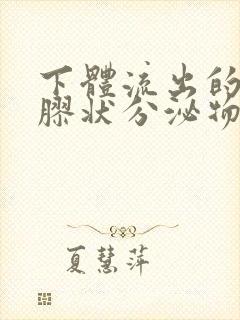 下體流出的
膠狀分泌物
夏慧萍